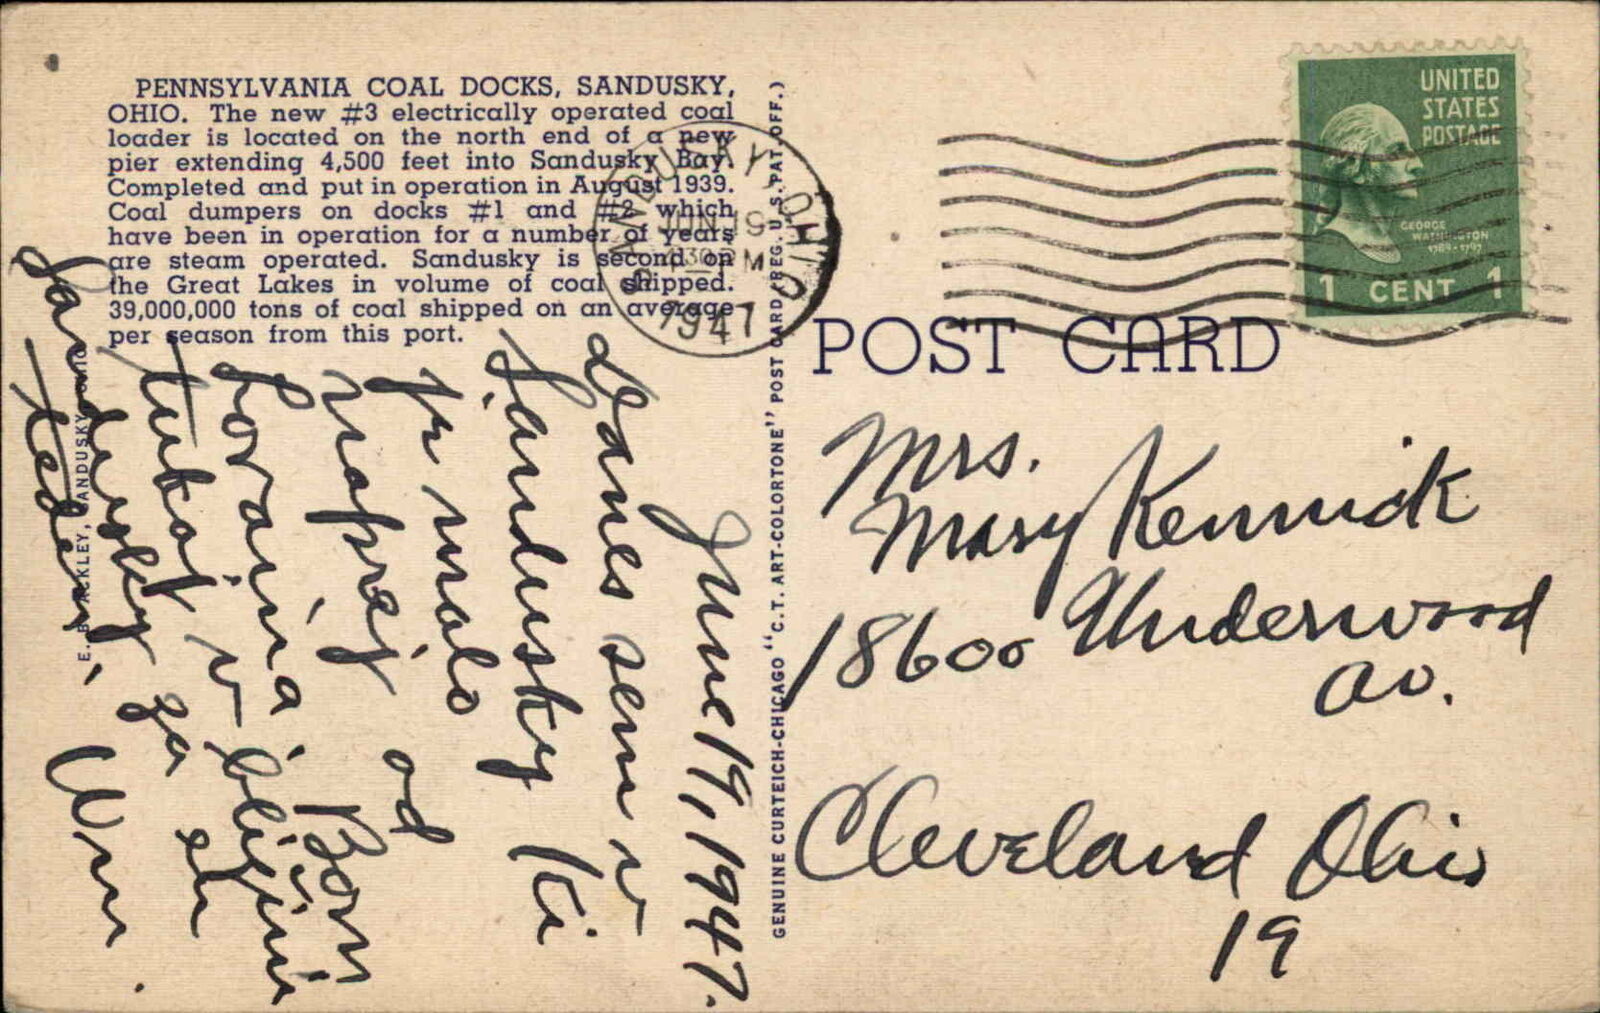 PENNSYLVANIA COAL DOCKS, SANDUSKY,
OHIO. The new #3 electrically operated coal
loader is located on the north end of a new
pier extending 4,500 feet into Sandusky Bay.
Completed and put in operation in August 1939.
Coal dumpers on docks #1 and #2 which
have been in operation for a number of years
are steam operated. Sandusky is second on
the Great Lakes in volume of coal shipped.
39,000,000 tons of coal shipped on an average
per season from this port.
E. B. ACKLEY, SANDUSKY, OHIO
GENUINE CURTEICH-CHICAGO "C.T. ART-COLORTONE" POST CARD (REG. U.S. PAT. OFF.)
SANDUSKY, OHIO
JUN 19
430 PM
1947
UNITED
STATES
POSTAGE
GEORGE
WASHINGTON
1789-1797
1 CENT 1
POST CARD
June 19, 1947.
Danes sem v
Sandusky Ki
je malo
naprej od
Loraina. Bom
tukaj v bližini
Sandusky za en
teden. Wm.
Mrs.
Mary Kennick
18600 Underwood
Av.
Cleveland Ohio
19